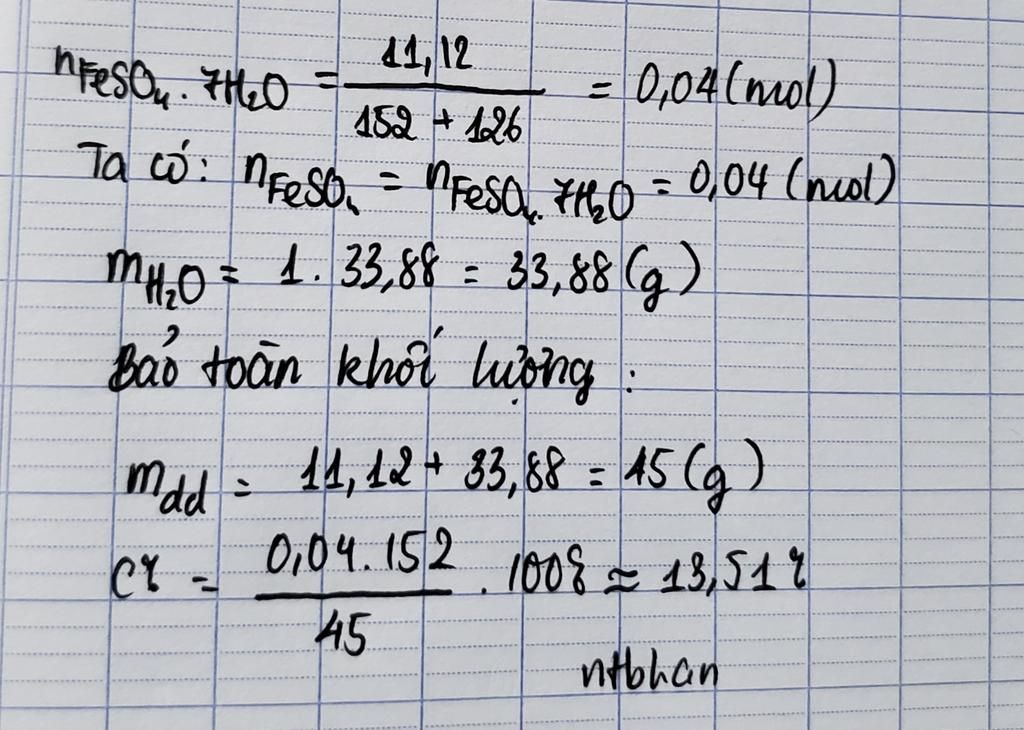 nFeSO₄.7H₂O = 11,12 / (152 + 126) = 0,04 (mol)
Ta có: nFeSO₄ = nFeSO₄.7H₂O = 0,04 (mol)
mH₂O = 1 . 33,88 = 33,88 (g)
Bảo toàn khối lượng :
mdd = 11,12 + 33,88 = 45 (g)
C% = 0,04.152 / 45 . 100% ≈ 13,51%
ntbhan